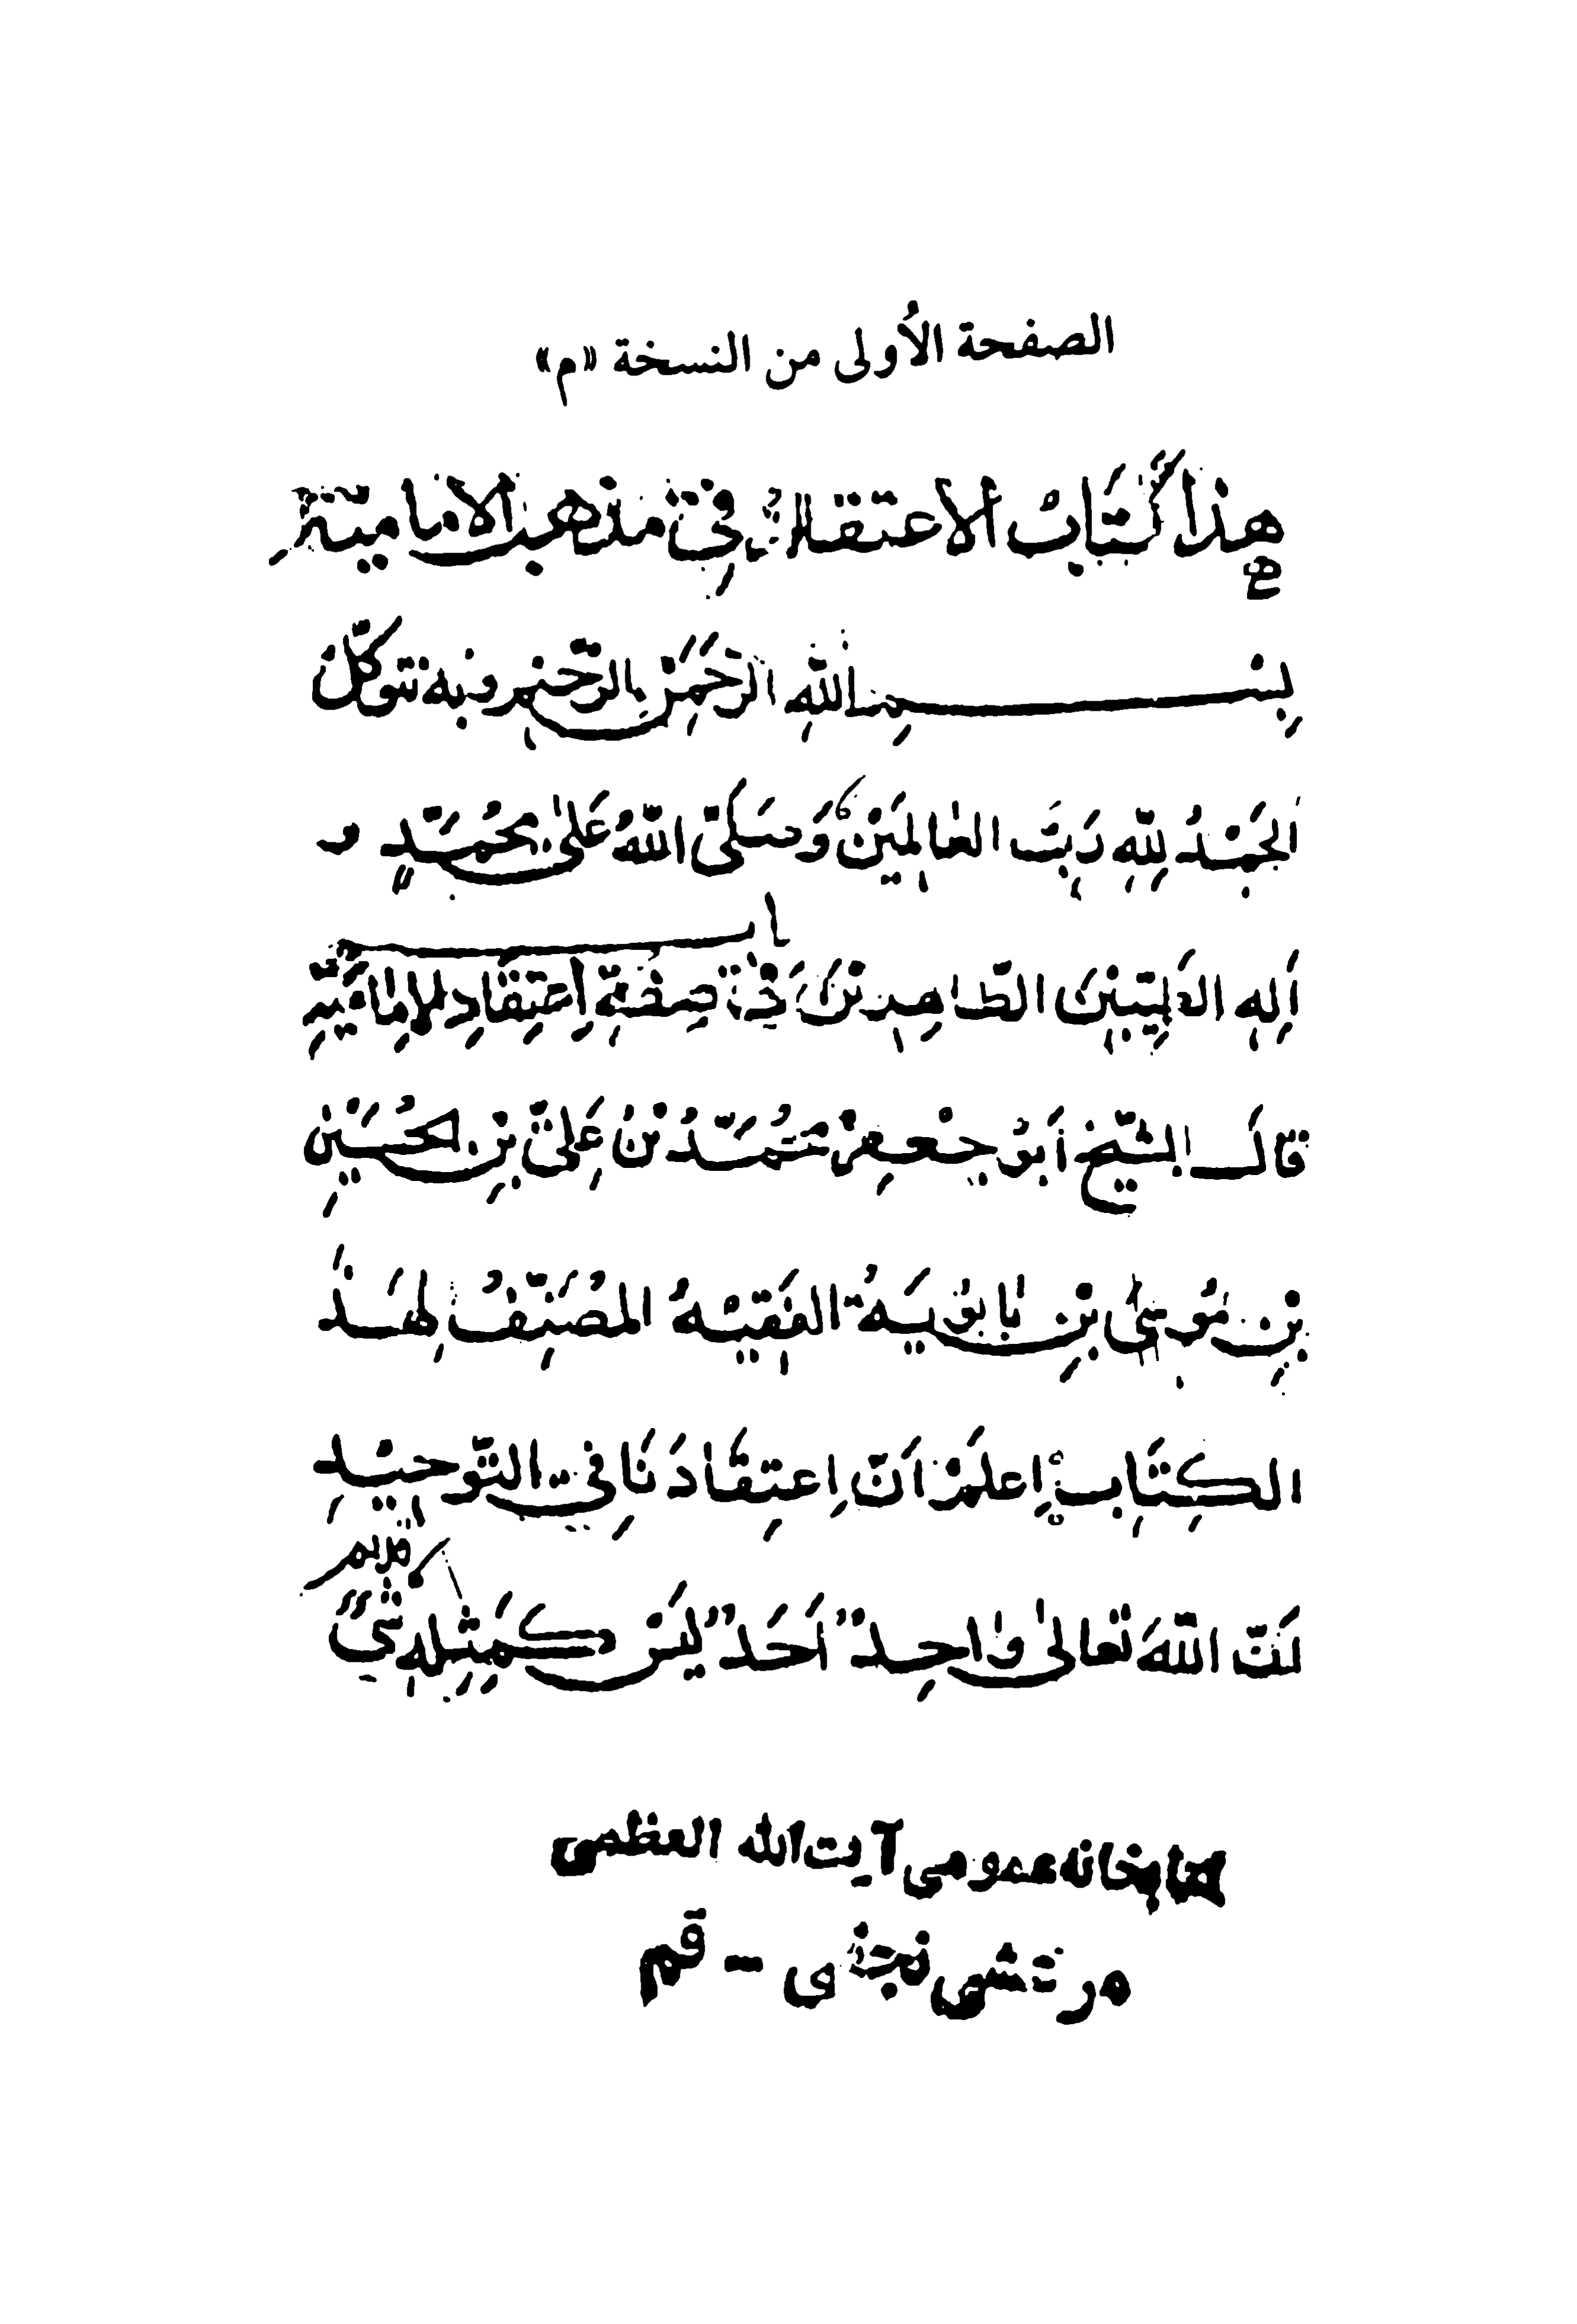 الصفحة الأولى من النسخة «م»
هذا كتاب الاعتقادات في مذهب الامامية
بسم الله الرحمن الرحيم وبه نتوكل
اَلْحَمْدُ لِلّٰهِ رَبِّ العٰالَمِيْنَ وَصَلَّى اللّٰهُ عَلىٰ مُحَمَّدٍ و
اَلِهِ الطَّيِّبِيْنَ الطّاهِرِيْنَ بٰاب فِي صِفَةِ اِعْتِقَادِ الإمٰامِيَّةِ
قالَ الشَّيْخُ أبُو جَعْفَرٍ مُحَمَّدُ بْنُ عَلِيِّ بْنِ الْحُسَيْنِ
بْنِ مُوسَى بْنِ بٰابَوَيْهِ الفَقِيْهُ المُصَنِّفُ لِهَذَا
الكِتَابِ اِعلَمْ اَنَّ اِعتِقَادَنَا فِي التَّوحِيْدِ
اَنَّ اللّٰهَ تَعالىٰ وٰاحِدٌ اَحَدٌ لَيْسَ كَمِثْلِهِ شَيْءٌ
قديم
كتابخانه عمومى آيت الله العظمى
مرعشى نجفى - قم